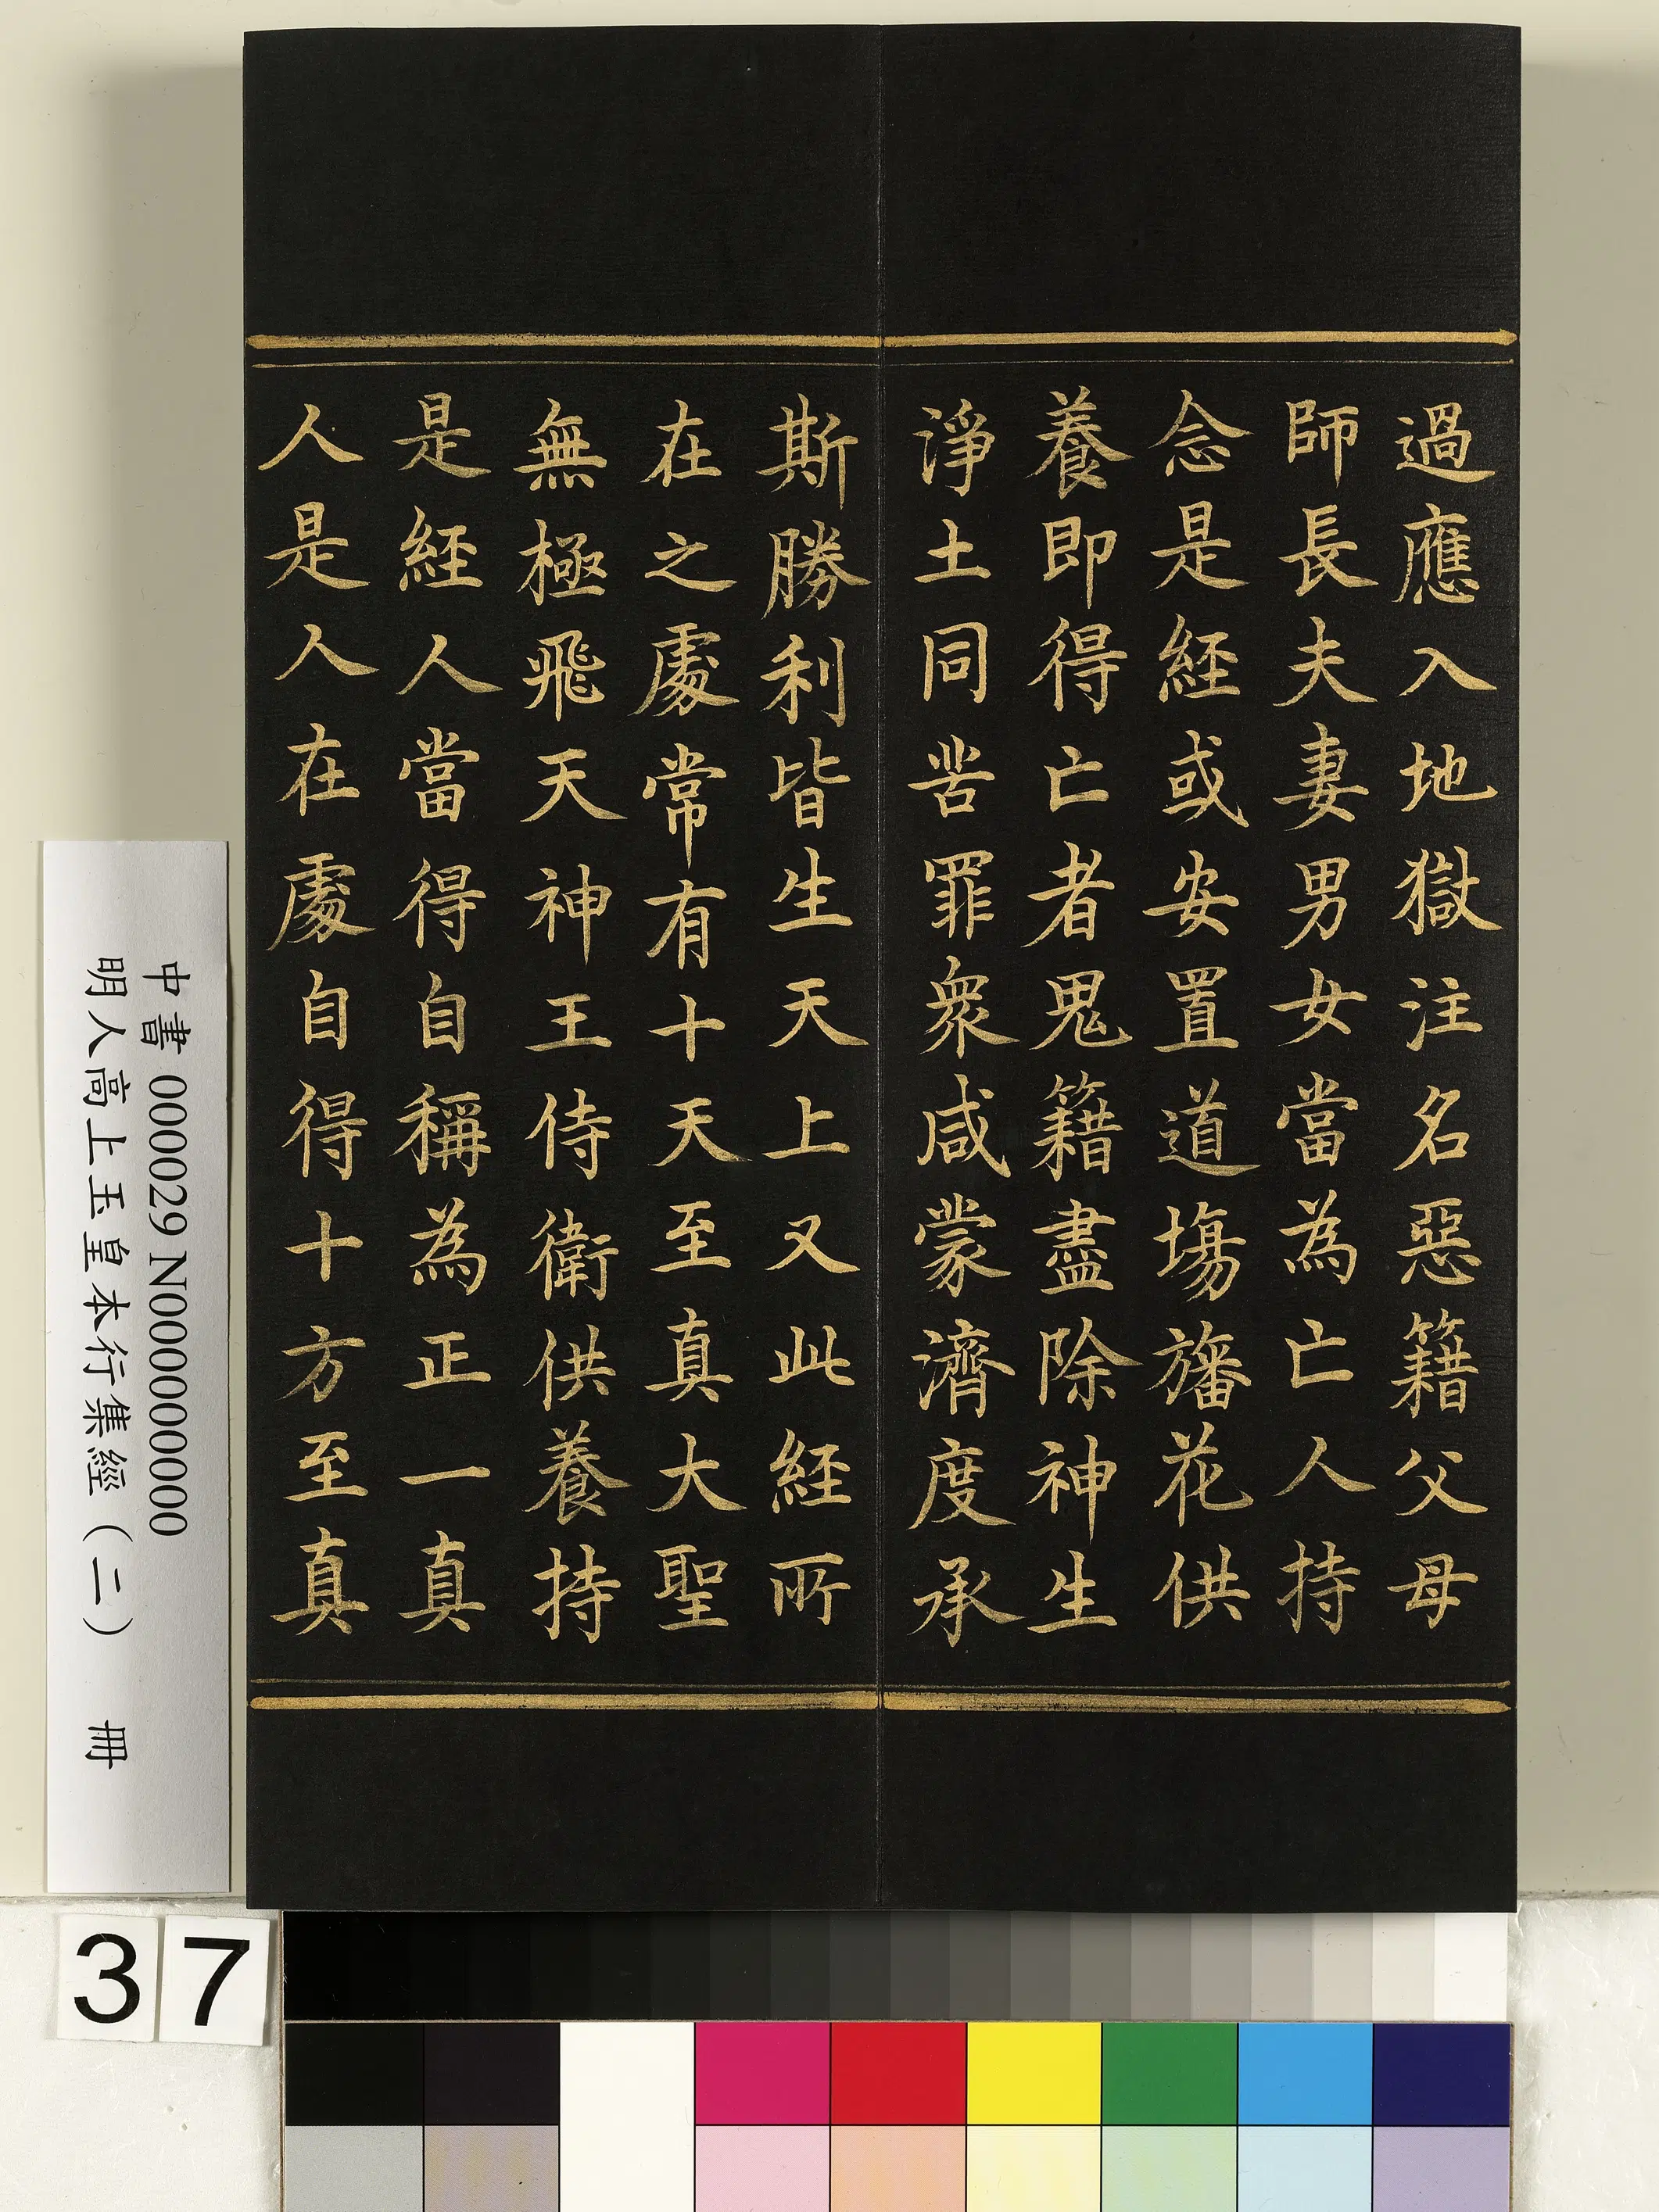 過應入地獄注名惡籍父母
師長夫妻男女當為亡人持
念是經或安置道場旛花供
養即得亡者鬼籍盡除神生
淨土同苦罪衆咸蒙濟度承
斯勝利皆生天上又此經所
在之處常有十天至真大聖
無極飛天神王侍衛供養持
是經人當得自稱為正一真
人是人在處自得十方至真
中書 000029 N000000000
明人高上玉皇本行集經（二） 冊
37